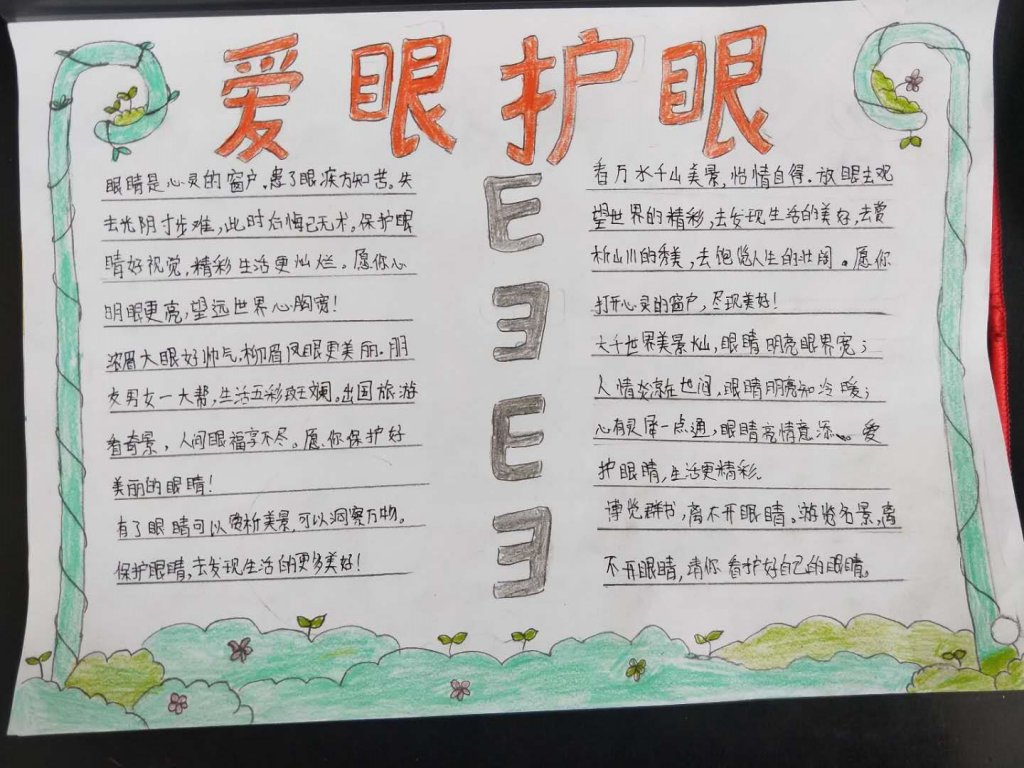 爱眼护眼
眼睛是心灵的窗户,患了眼疾方知苦。失
去光阴寸步难,此时后悔已无术。保护眼
睛好视觉,精彩生活更灿烂。愿你心
明眼更亮,望远世界心胸宽!
浓眉大眼好帅气,柳眉凤眼更美丽.朋
友男女一大帮,生活五彩斑斓。出国旅游
看奇景,人间眼福享不尽。愿你保护好
美丽的眼睛!
有了眼睛可以赏析美景,可以洞察万物。
保护眼睛,去发现生活的更多美好!
E
Ǝ
E
Ǝ
看万水千山美景,怡情自得.放眼去观
望世界的精彩,去发现生活的美好,去赏
析山川的秀美,去饱览人生的壮阔。愿你
打开心灵的窗户,尽现美好!
大千世界美景灿,眼睛明亮眼界宽;
人情炎凉在世间,眼睛明亮知冷暖;
心有灵犀一点通,眼睛亮情意添。爱
护眼睛,生活更精彩.
博览群书,离不开眼睛。游览名景,离
不开眼睛,请你看护好自己的眼睛。